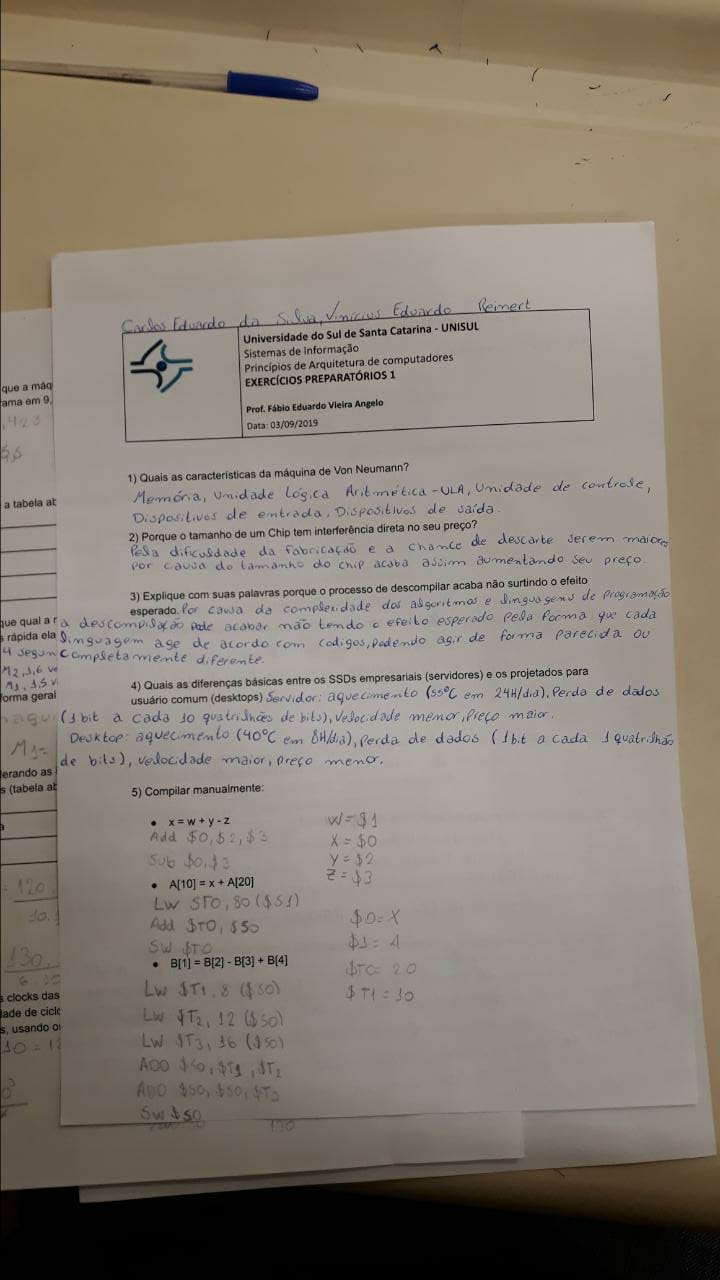 Carlos Eduardo da Silva, Vinicius Eduardo Reinert
Universidade do Sul de Santa Catarina - UNISUL
Sistemas de Informação
Princípios de Arquitetura de computadores
EXERCÍCIOS PREPARATÓRIOS 1
Prof. Fábio Eduardo Vieira Angelo
Data: 03/09/2019
1) Quais as características da máquina de Von Neumann?
Memória, Unidade Lógica Aritmética - ULA, Unidade de controle,
Dispositivos de entrada, Dispositivos de saída.
2) Porque o tamanho de um Chip tem interferência direta no seu preço?
Pela dificuldade da fabricação e a chance de descarte serem maiores
por causa do tamanho do chip acaba assim aumentando seu preço.
3) Explique com suas palavras porque o processo de descompilar acaba não surtindo o efeito
esperado. Por causa da complexidade dos algoritmos e linguagens de programação
a descompilação pode acabar não tendo o efeito esperado pela forma que cada
linguagem age de acordo com codigos, podendo agir de forma parecida ou
completamente diferente.
4) Quais as diferenças básicas entre os SSDs empresariais (servidores) e os projetados para
usuário comum (desktops) Servidor: aquecimento (55°C em 24H/dia), Perda de dados
(1 bit a cada 10 quatrilhões de bits), Velocidade menor, Preço maior.
Desktop: aquecimento (40°C em 8H/dia), Perda de dados (1 bit a cada 1 quatrilhão
de bits), velocidade maior, preço menor.
5) Compilar manualmente:
• x = w + y - z
W = $1
Add $0, $2, $3
X = $0
Sub $0, $3
Y = $2
Z = $3
• A[10] = x + A[20]
LW $T0, 80 ($S1)
Add $T0, $S0
$0 = X
SW $T0
$1 = A
• B[1] = B[2] - B[3] + B[4]
$T0 = 20
LW $T1, 8 ($S0)
$T1 = 10
LW $T2, 12 ($S0)
LW $T3, 16 ($S0)
ADD $S0, $T1, $T2
ADD $S0, $S0, $T3
SW $S0
que a máq
rama em 9,
a tabela ab
que qual a r
s rápida ela
4 segun
M2, 1,6 ve
M1, 1,5 v
forma geral
M1=
erando as
s (tabela ab
120
130
s clocks das
dade de ciclo
s, usando o
10 = 12
130